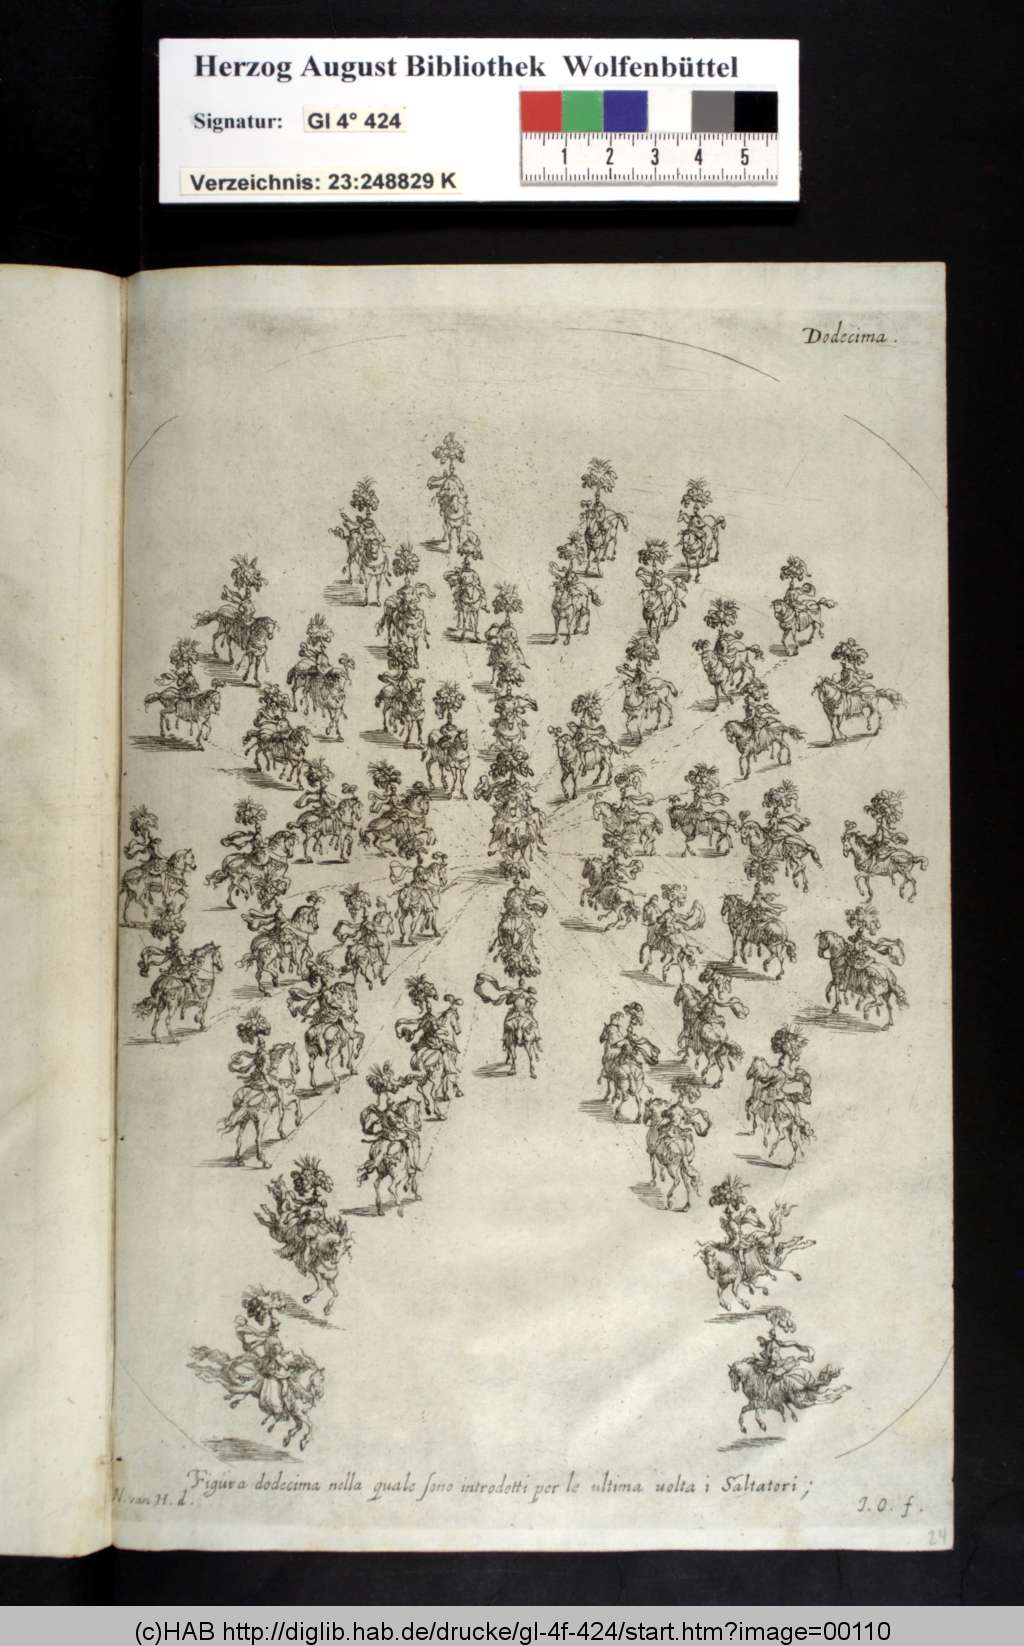 Herzog August Bibliothek Wolfenbüttel
Signatur: Gl 4° 424
Verzeichnis: 23:248829 K
1 2 3 4 5
Dodecima.
Figura dodecima nella quale sono introdotti per le ultima uolta i Saltatori;
N. van H. d.
J. O. f.
24
(c)HAB http://diglib.hab.de/drucke/gl-4f-424/start.htm?image=00110